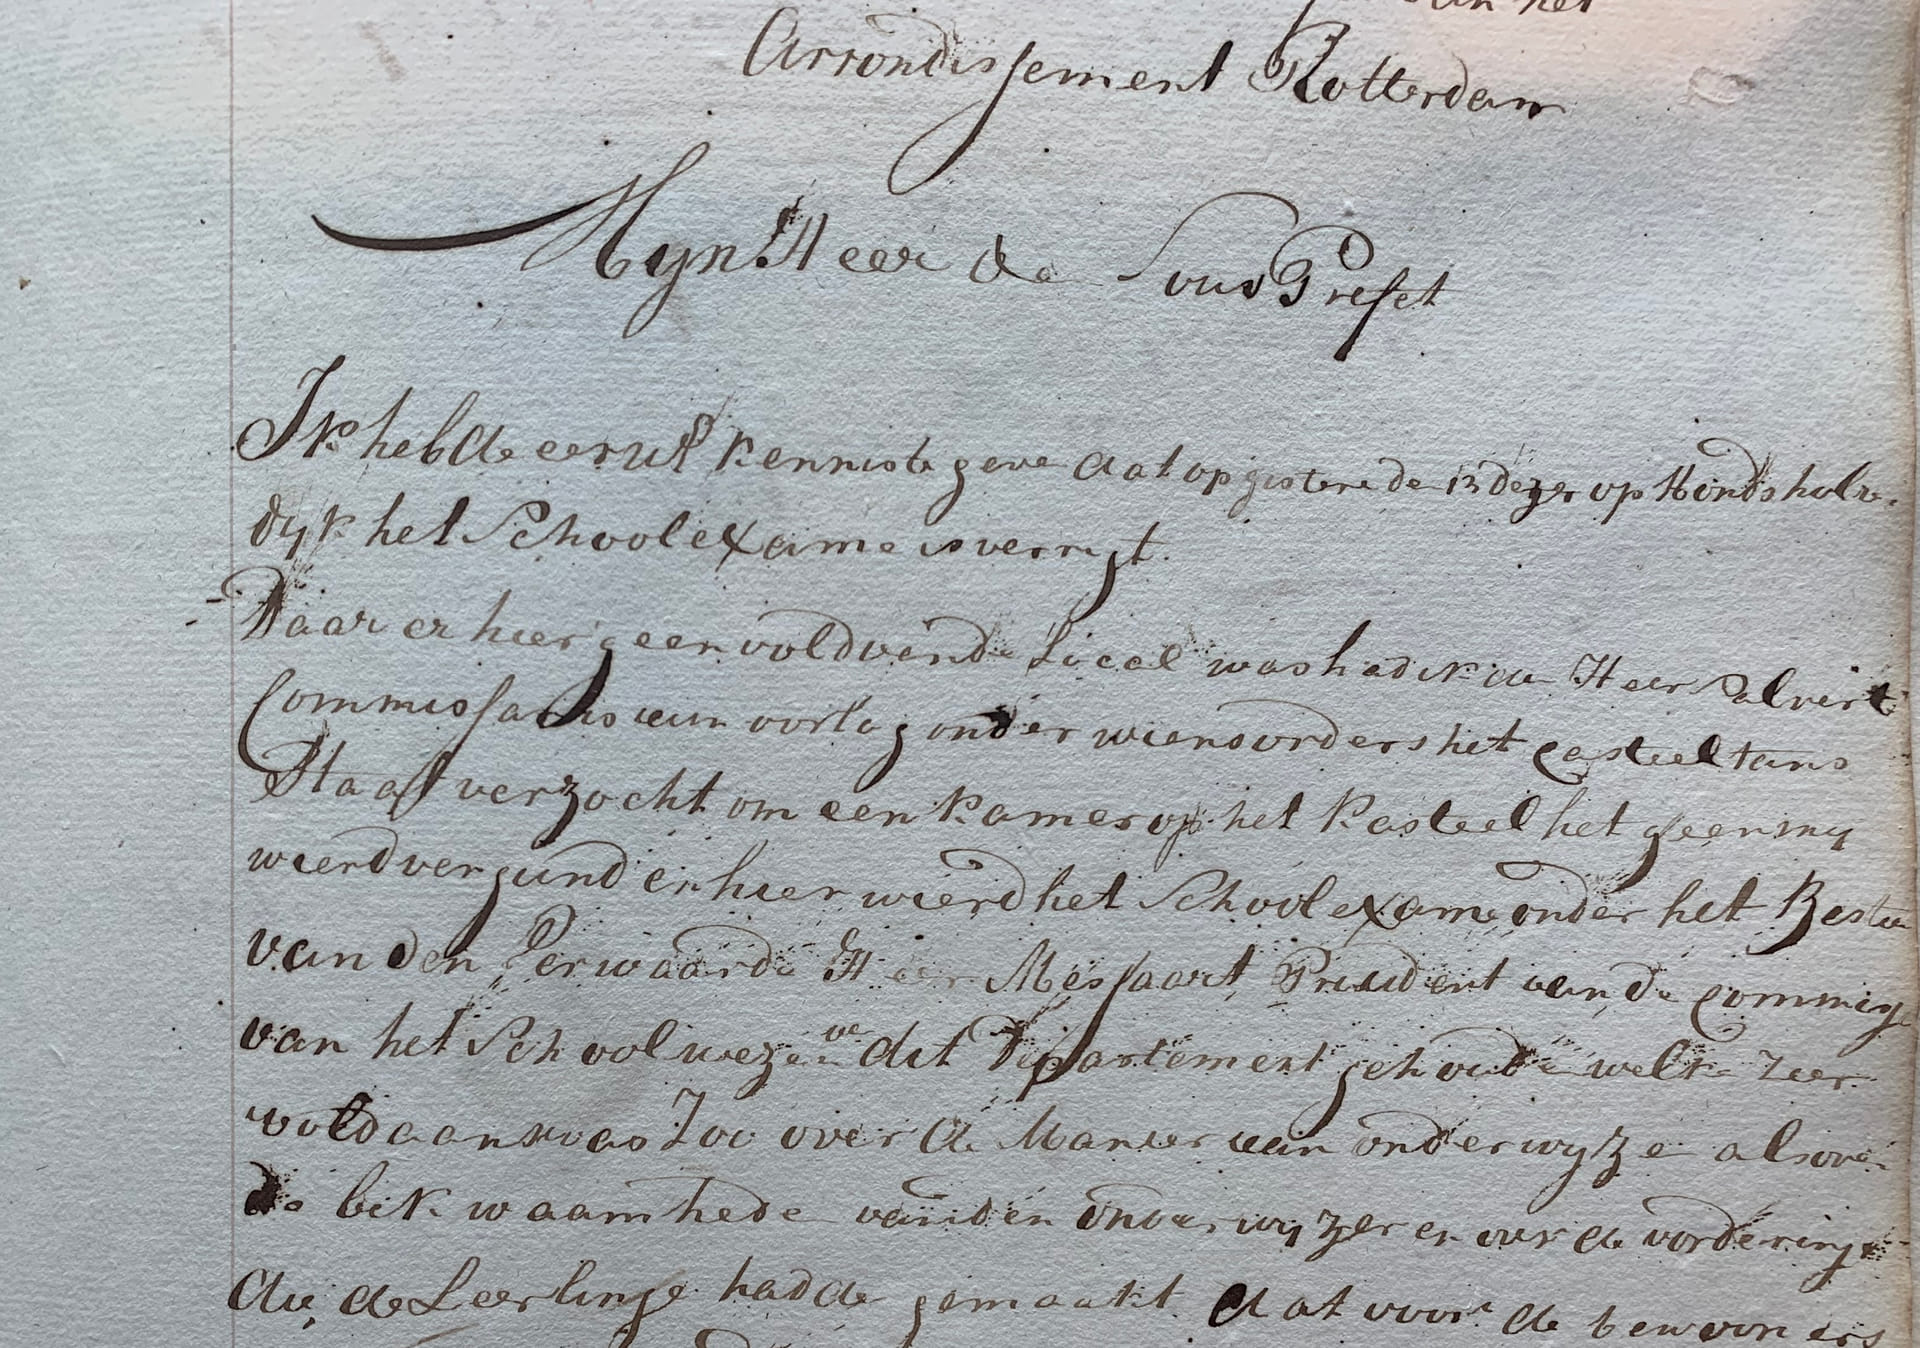 van het
Arrondissement Rotterdam
Myn Heer de Sous Prefet
Ik heb de eer uE kennis te geve dat op gistere de 13 dezer op Hondsholre
dyk het School exame is verrigt.
Daar er hier geen voldoende Locael was had ik de Heer
Commissaris van oorlog onder wiens orders het Casteel tans
Staat verzocht om een kamer op het kasteel het geen my
wierd vergund en hier wierd het School exame onder het Bestuu
van den Eerwaarde Heer Messaart President van de Commissi
van het School weze van dit Departement gehoude welke zeer
voldaan was Zoo over de Manier van onderwyze als ove
de bekwaamhede van den onderwyzer en over de vorderinge
die de Leerlinge hadde gemaakt dat voor de bewooners